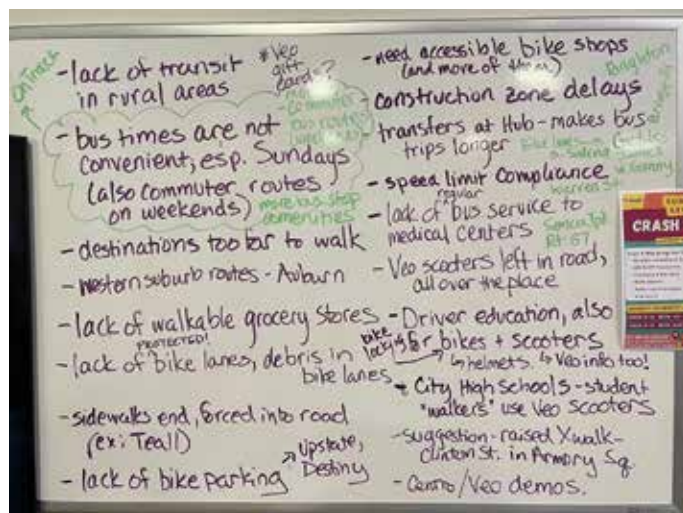 OnTrack
- lack of transit
in rural areas
* Veo
gift
cards?
- commuter
bus routes
- bus times are not
convenient, esp. Sundays
(also commuter routes
on weekends)
more bus stop
amenities
- destinations too far to walk
- western suburb routes - Auburn
- lack of walkable grocery stores
PROTECTED!
- lack of bike lanes, debris in
bike lanes
- sidewalks end, forced into road
(ex: Teall)
- lack of bike parking
Upstate,
Destiny
- need accessible bike shops
(and more of them)
- construction zone delays
- transfers at Hub - makes bus
trips longer
- speed limit compliance
regular
- lack of bus service to
medical centers
Rt. 57
- Veo scooters left in road,
all over the place
- Driver education, also
for bikes + scooters
bike
helmets. Veo info too!
- City High Schools - student
"walkers" use Veo scooters
- suggestion - raised Xwalk -
Clinton St. in Armory Sq.
- Centro/Veo demos.
CRASH